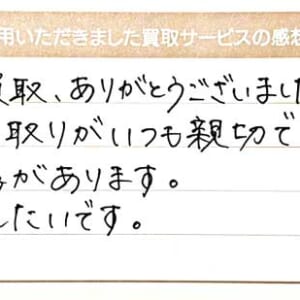 用いただきました買取サービスの感想
取、ありがとうございまし
取りがいつも親切で
があります。
したいです。